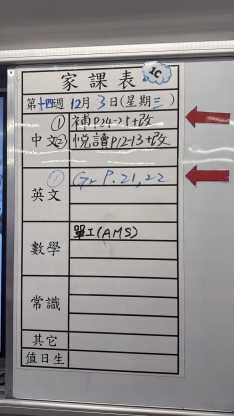 家課表 1C
第十四週 12月3日(星期三)
中文 ① 補P.24-25+改
② 悦讀P.12-13+改
英文 ① Gr P.21,22
數學 單工(AMS)
常識
其它
值日生